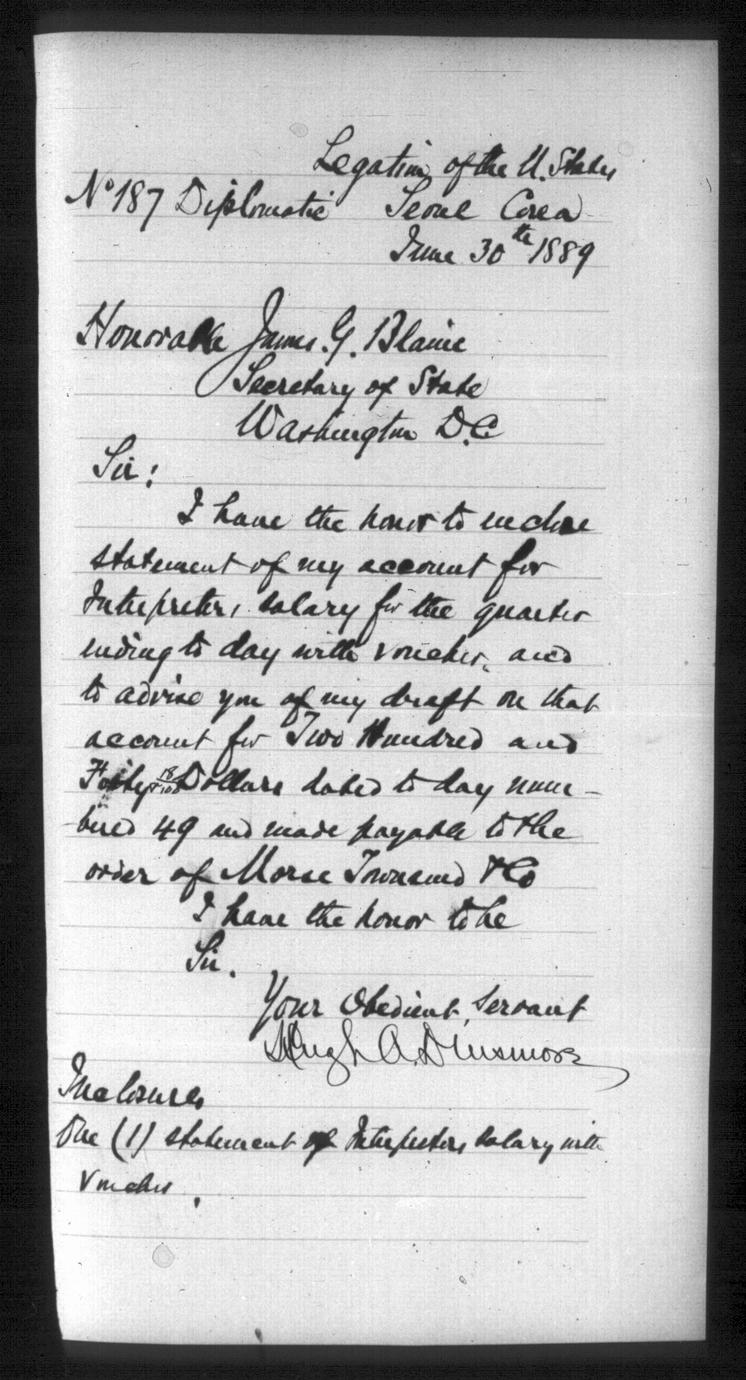 Legation of the U. States
No 187 Diplomatic Seoul Corea
June 30th 1889
Honorable James. G. Blaine
Secretary of State
Washington D.C
Sir:
I have the honor to inclose
statement of my account for
Interpreters salary for the quarter
ending to day with voucher, and
to advise you of my draft on that
account for Two Hundred and
Forty Dollars dated to day num-
bered 49 and made payable to the
order of Morse Townsend & Co
I have the honor to be
Sir.
Your Obedient Servant
Hugh A. Dinsmore
Inclosures
One (1) statement of Interpreters salary with
Voucher.